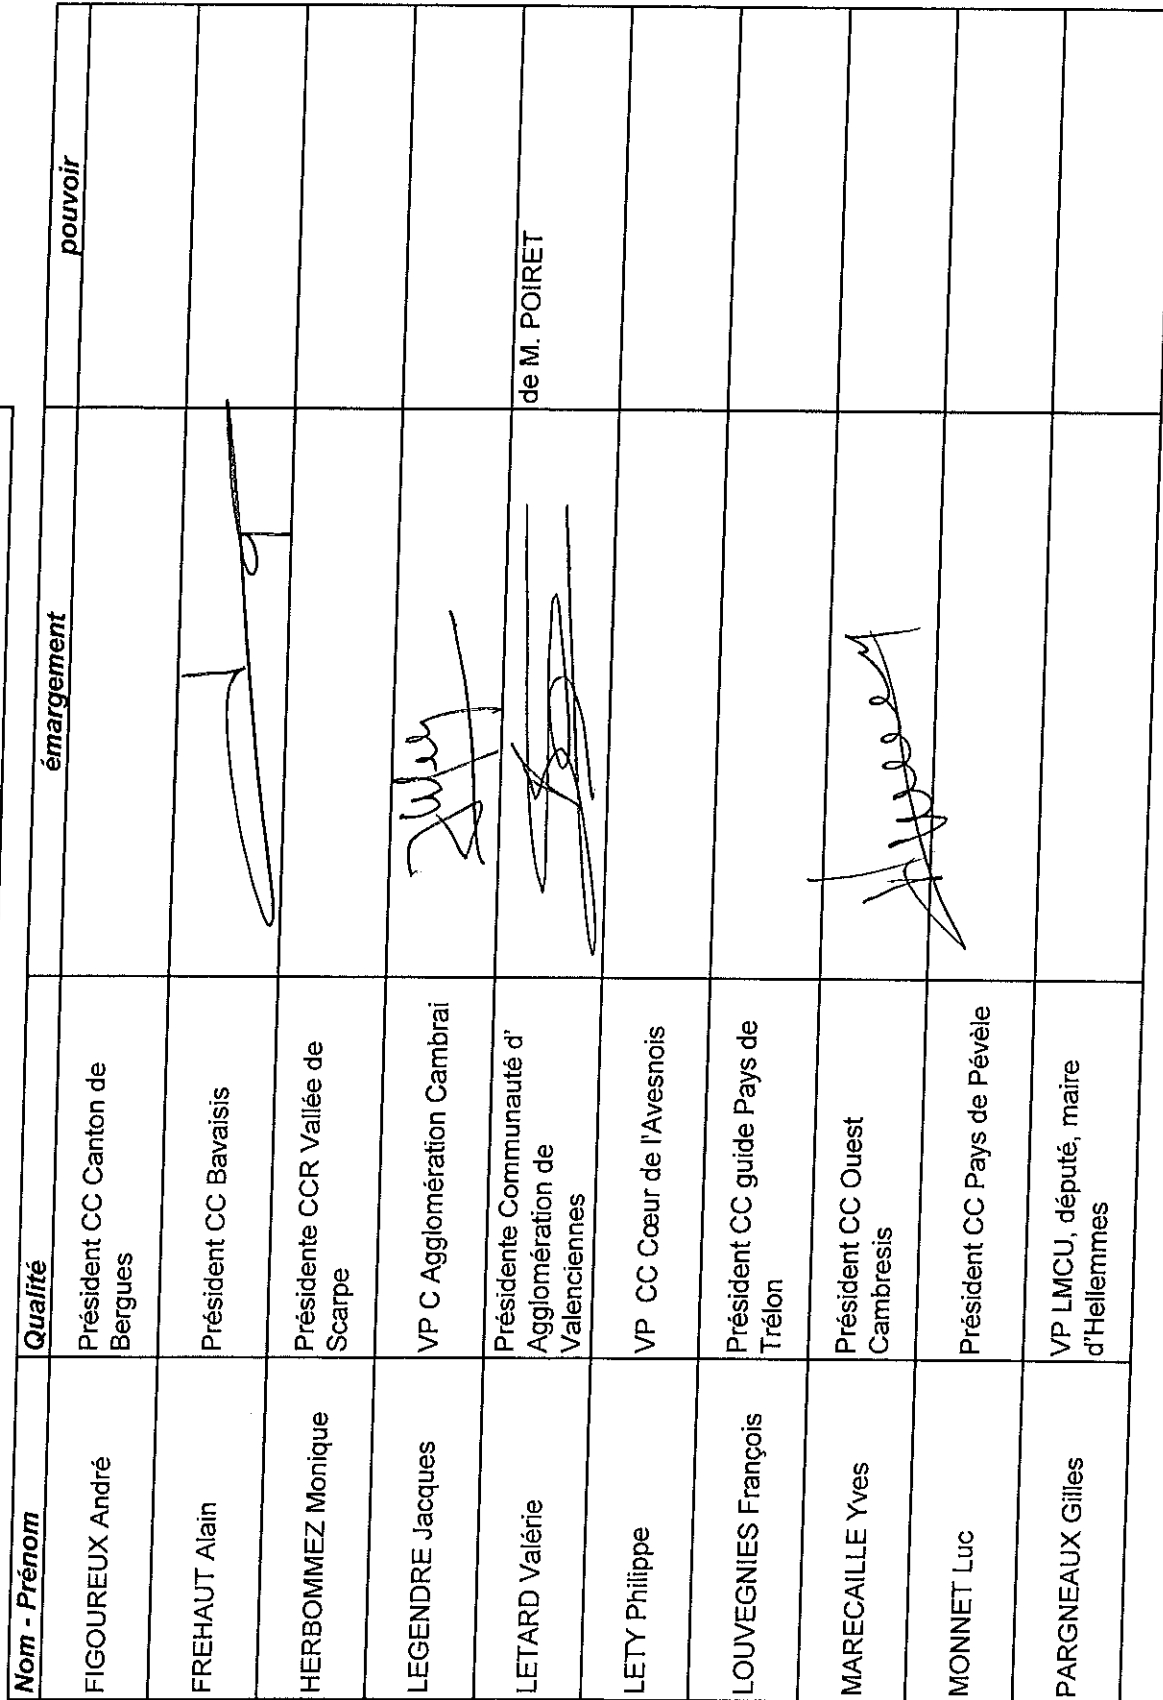 Nom - Prénom Qualité émargement pouvoir
FIGOUREUX André Président CC Canton de
Bergues
FREHAUT Alain Président CC Bavaisis
HERBOMMEZ Monique Présidente CCR Vallée de
Scarpe
LEGENDRE Jacques VP C Agglomération Cambrai
LETARD Valérie Présidente Communauté d' de M. POIRET
Agglomération de
Valenciennes
LETY Philippe VP CC Cœur de l'Avesnois
LOUVEGNIES François Président CC guide Pays de
Trélon
MARECAILLE Yves Président CC Ouest
Cambresis
MONNET Luc Président CC Pays de Pévèle
PARGNEAUX Gilles VP LMCU, député, maire
d'Hellemmes